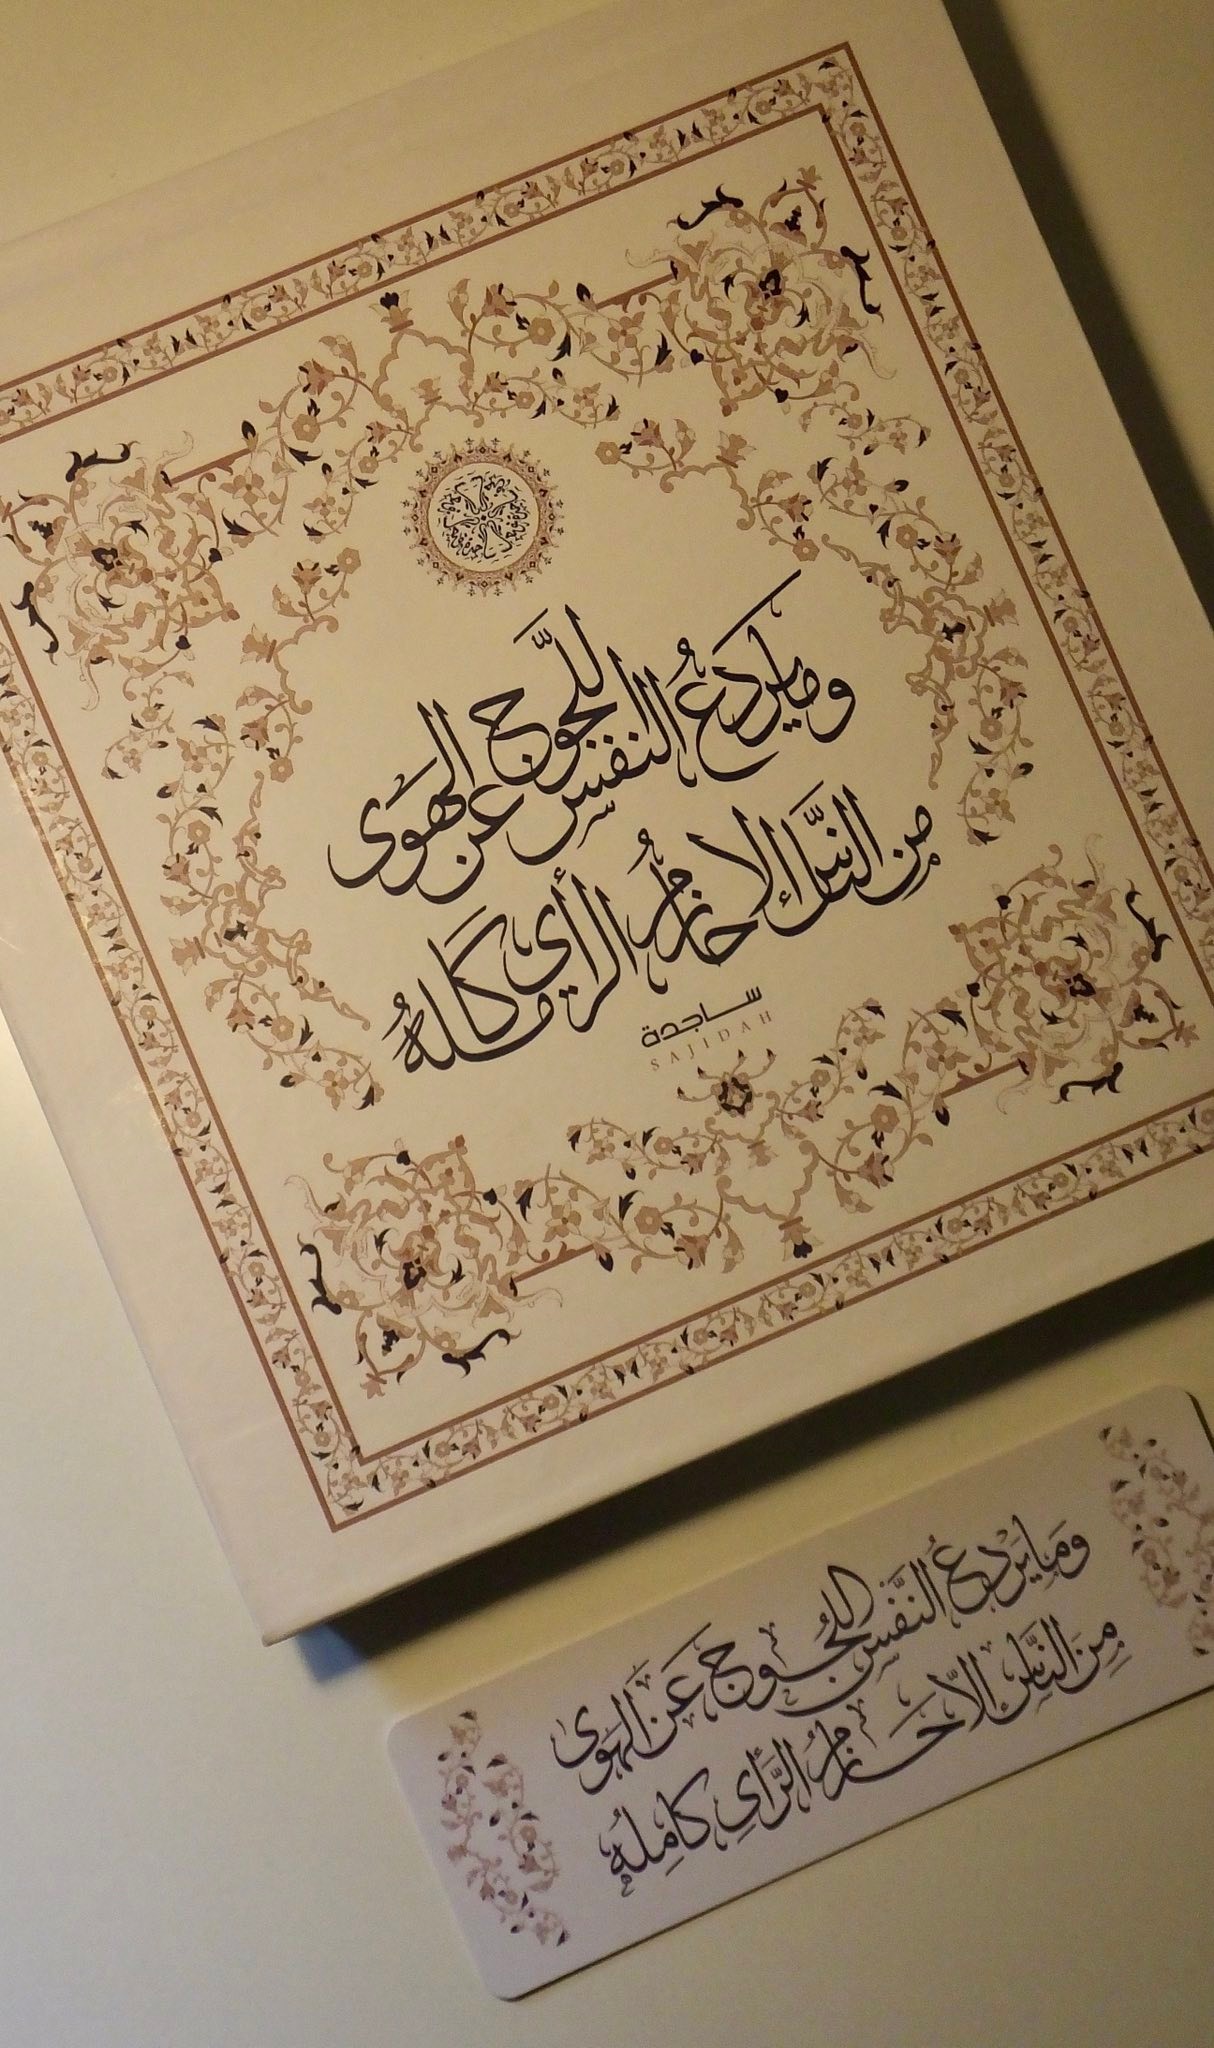 وما يردعُ النفس اللَّجوج عن الهَوى
من النَّاس إلا حازمُ الرأي كَاملهُ
ساجدة
SAJIDAH
وَمَا يَردعُ النَّفسَ اللَّجُوجَ عَنِ الهَوى
مِنَ النَّاسِ إلاّ حَازمُ الرَّأيِ كَامِلُهُ